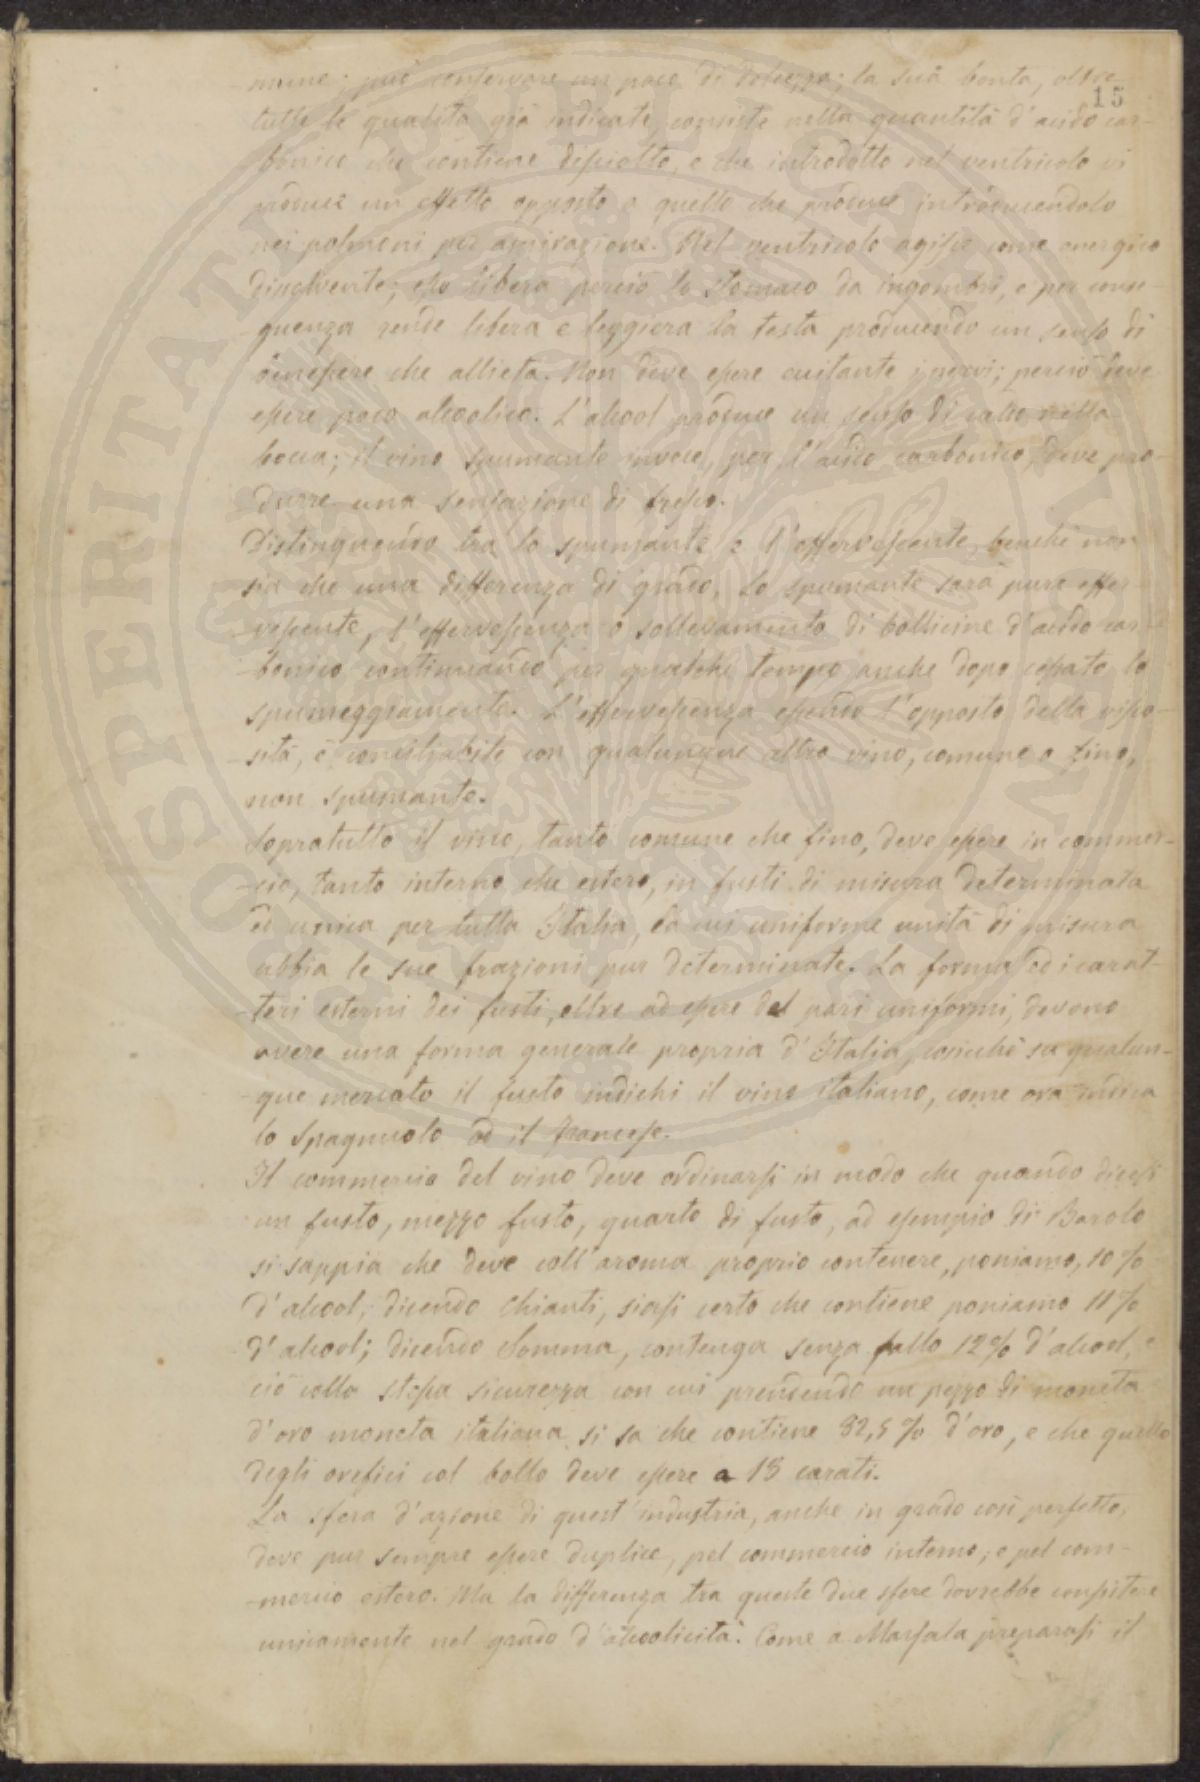 15
mune; può conservare un poco di dolcezza; la sua bontà, oltre
tutte le qualità già indicate, consiste nella quantità d'acido car-
-bonico che contiene disciolto, e che introdotto nel ventricolo vi
produce un effetto opposto a quello che produce introducendolo
nei polmoni per aspirazione. Nel ventricolo agisce come energico
dissolvente; esso libera perciò lo stomaco da ingombri, e per conse-
-guenza rende libera e leggiera la testa producendo un senso di
benessere che allieta. Non deve essere eccitante i nervi; perciò deve
essere poco alcoolico. L'alcool produce un senso di caldo nella
bocca; il vino spumante invece, per l'acido carbonico, deve pro-
-durre una sensazione di fresco.
Distinguendo tra lo spumante e l'effervescente, benché non
sia che una differenza di grado. Lo spumante sarà pure effer-
-vescente, l'effervescenza o sollevamento di bollicine d'acido car-
-bonico continuando per qualche tempo anche dopo cessato lo
spumeggiamento. L'effervescenza essendo l'opposto della visco-
-sità, è conciliabile con qualunque altro vino, comune o fino,
non spumante.
Sopratutto il vino, tanto comune che fino, deve essere in commer-
-cio, tanto interno che estero, in fusti di misura determinata
ed unica per tutta Italia, la cui uniforme unità di misura
abbia le sue frazioni pur determinate. La forma ed i carat-
-teri esterni dei fusti, oltre ad essere del pari uniformi, devono
avere una forma generale propria d'Italia, cosicché su qualun-
-que mercato il fusto indichi il vino italiano, come ora indica
lo spagnuolo ed il francese.
Il commercio del vino deve ordinarsi in modo che quando dicesi
un fusto, mezzo fusto, quarto di fusto, ad esempio di Barolo
si sappia che deve coll'aroma proprio contenere, poniamo, 10 %
d'alcool; dicendo Chianti, siasi certo che contiene poniamo 11 %
d'alcool; dicendo Somma, contenga senza fallo 12 % d'alcool, e
ciò colla stessa sicurezza con cui prendendo un pezzo di moneta
d'oro moneta italiana si sa che contiene 82,5 % d'oro, e che quello
degli orefici col bollo deve essere a 18 carati.
La sfera d'azione di quest'industria, anche in grado così perfetto,
deve pur sempre essere duplice, pel commercio interno, e pel com-
-mercio estero. Ma la differenza tra queste due sfere dovrebbe consistere
unicamente nel grado d'alcoolicità. Come a Marsala preparasi il